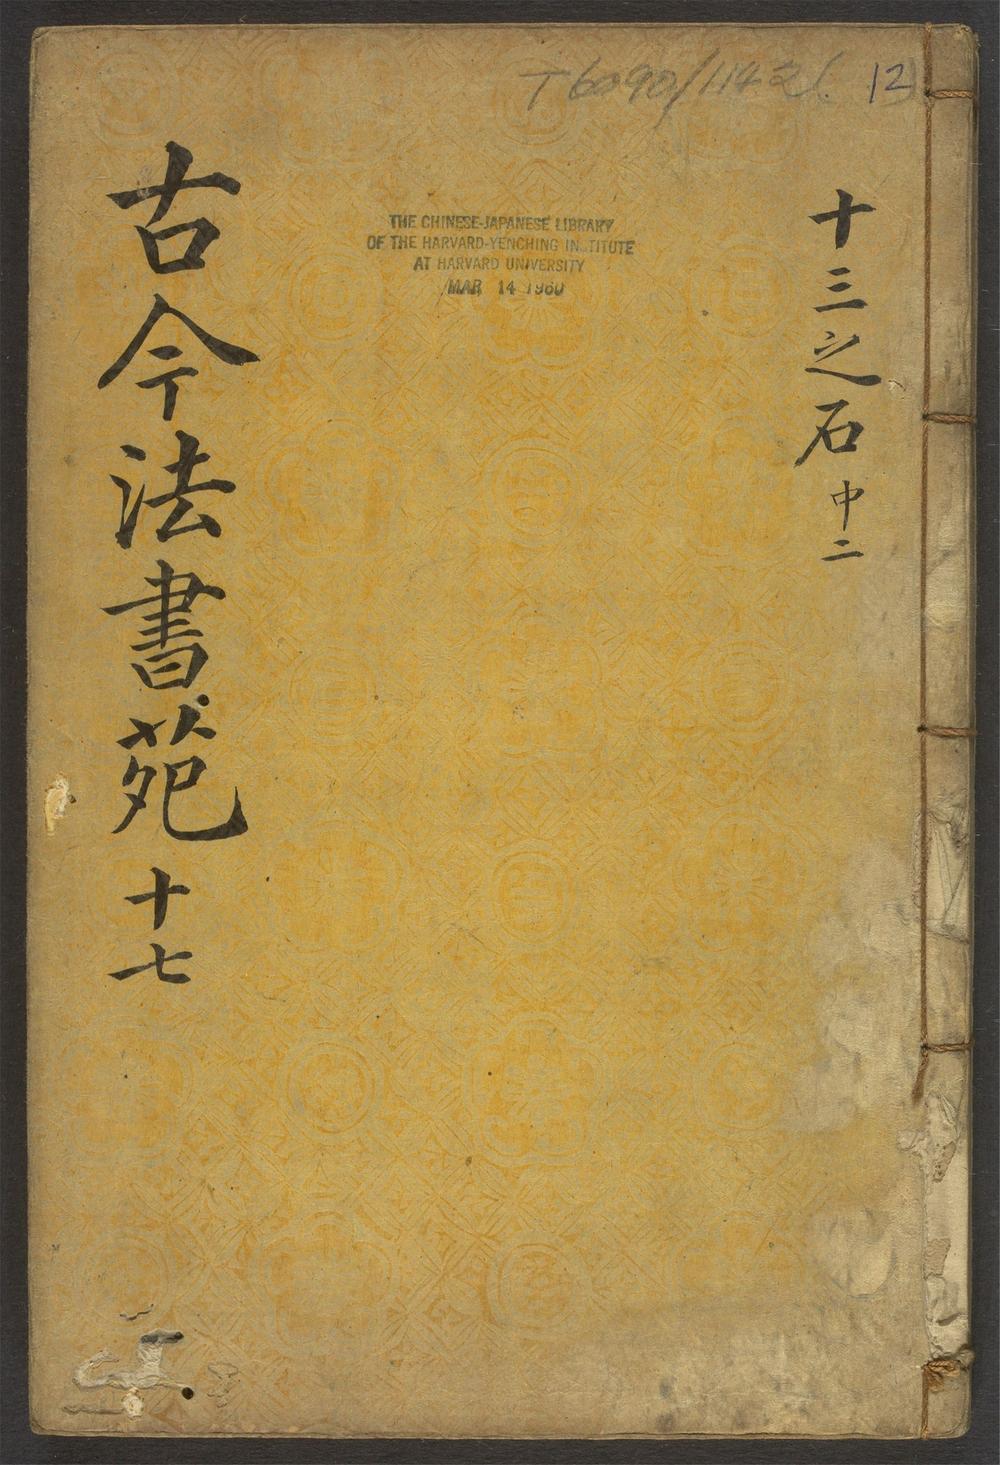 T6090/1142(
12
十三之石 中二
THE CHINESE-JAPANESE LIBRARY
OF THE HARVARD-YENCHING IN TITUTE
AT HARVARD UNIVERSITY
MAR 14 1960
古今法書苑 十七